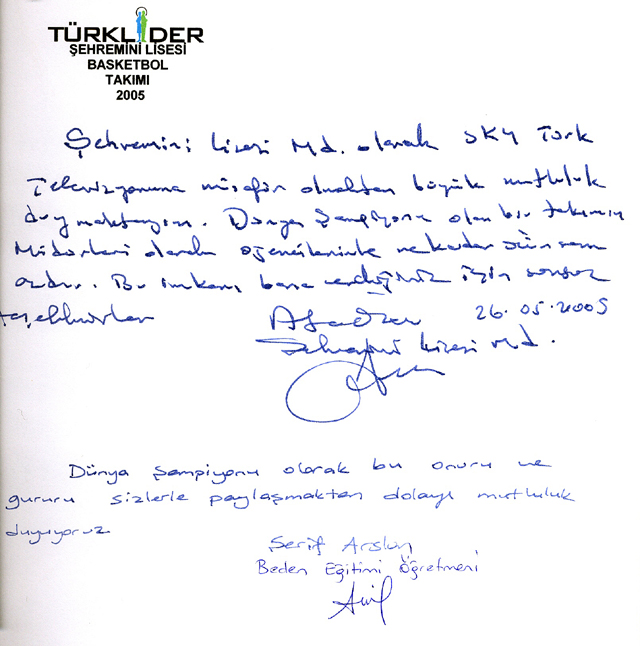 TÜRKLİDER
ŞEHREMİNİ LİSESİ
BASKETBOL
TAKIMI
2005
Şehremini Lisesi Md. olarak SKY Türk
Televizyonuna misafir olmaktan büyük mutluluk
duymaktayım. Dünya Şampiyonu olan bir takımın
Müdürleri olarak öğrencilerimle ne kadar övünsem
azdır. Bu imkanı bana verdiğiniz için sonsuz
teşekkürler
26.05.2005
Şehremini Lisesi Md.
Dünya Şampiyonu olarak bu onuru ve
gururu sizlerle paylaşmaktan dolayı mutluluk
duyuyoruz
Şerif Arslan
Beden Eğitimi Öğretmeni